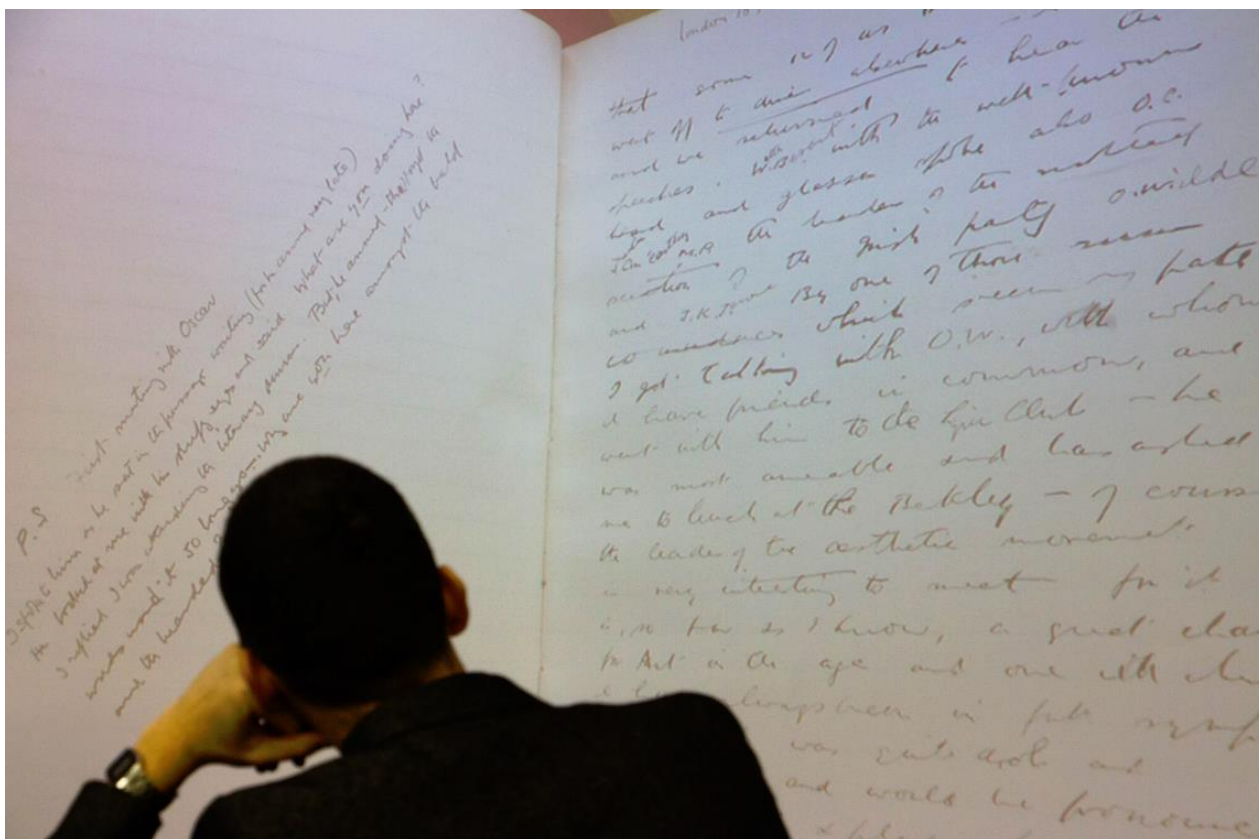 P.S First meeting with Oscar
I spoke to him as he sat in the passage waiting (for he arrived very late)
He looked at me with his sleepy eyes and said what are you doing here?
I replied I was attending the literary dinner. But, he answered
words and it so longer — why are you here amongst the bald
and the bearded?
London
that some 12 of us
went off to dine elsewhere
and we returned to hear the
speeches. W. Besant with the well-known
beard and glasses spoke also O.C.
the leader of the
section of the Irish party O. Wilde
and J.K. By one of those
coincidences which seem my fate
I got talking with O.W., with whom
I have friends in common, and
went with him to the Club - he
was most amiable and has asked
me to lunch at the Berkeley - of course
the leader of the aesthetic movement
is very interesting to meet for it
is, so far as I know, a great
for Art in the age and one with
always been in full
was quite and
and would he